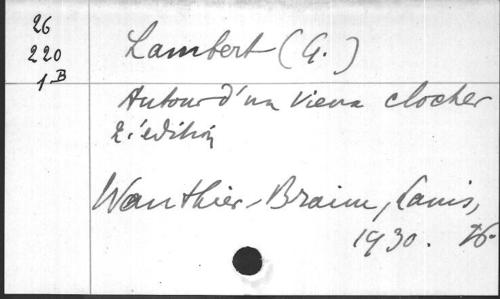 26
220
1 B
Lambert (G.)
Autour d'un vieux clocher
2.e édition
Wauthier-Braine, Louis,
1930.